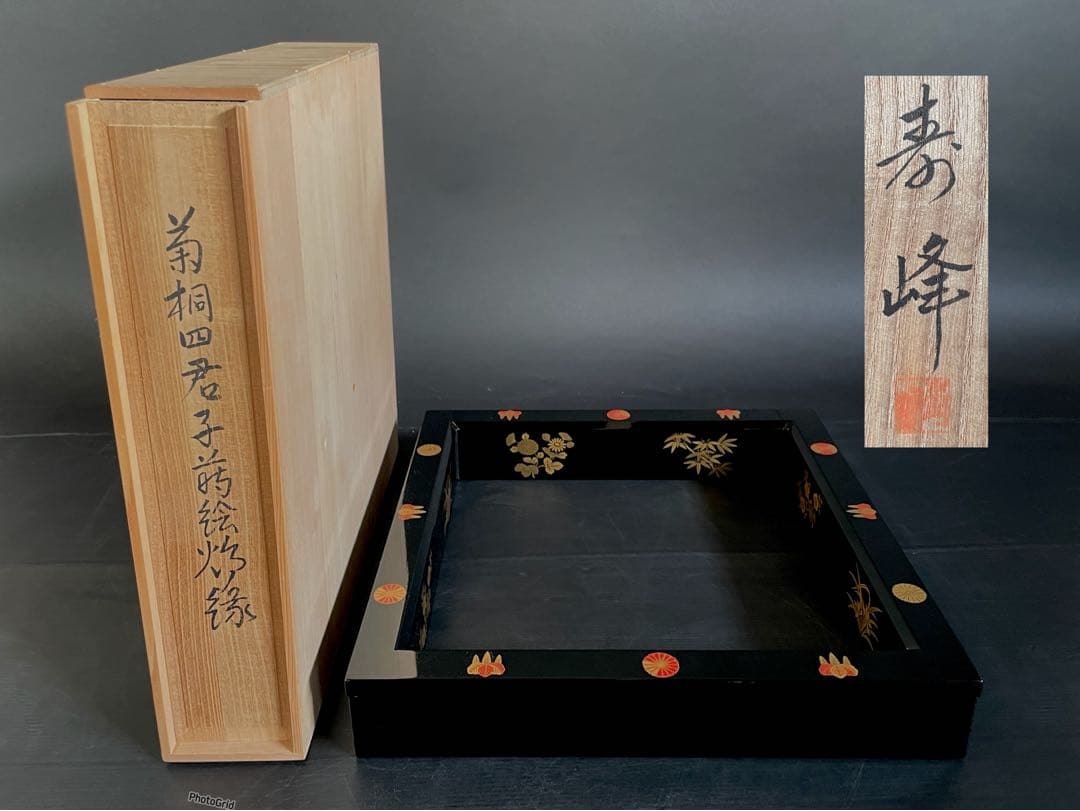 菊桐四君子蒔絵炉縁
寿峰
PhotoGrid